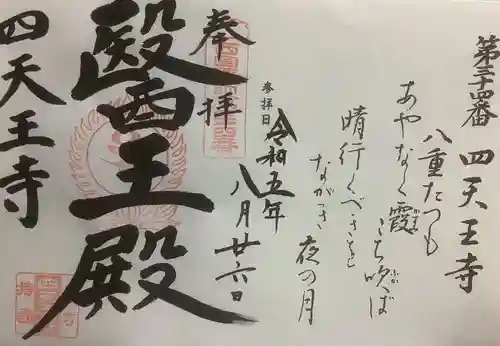 第三十四番 四天王寺
八重たつも
あやなく霞
こち吹ば
晴行くべき
夜の月
参拝日
令和五年
八月廿六日
奉拝
醫王殿
四天王寺